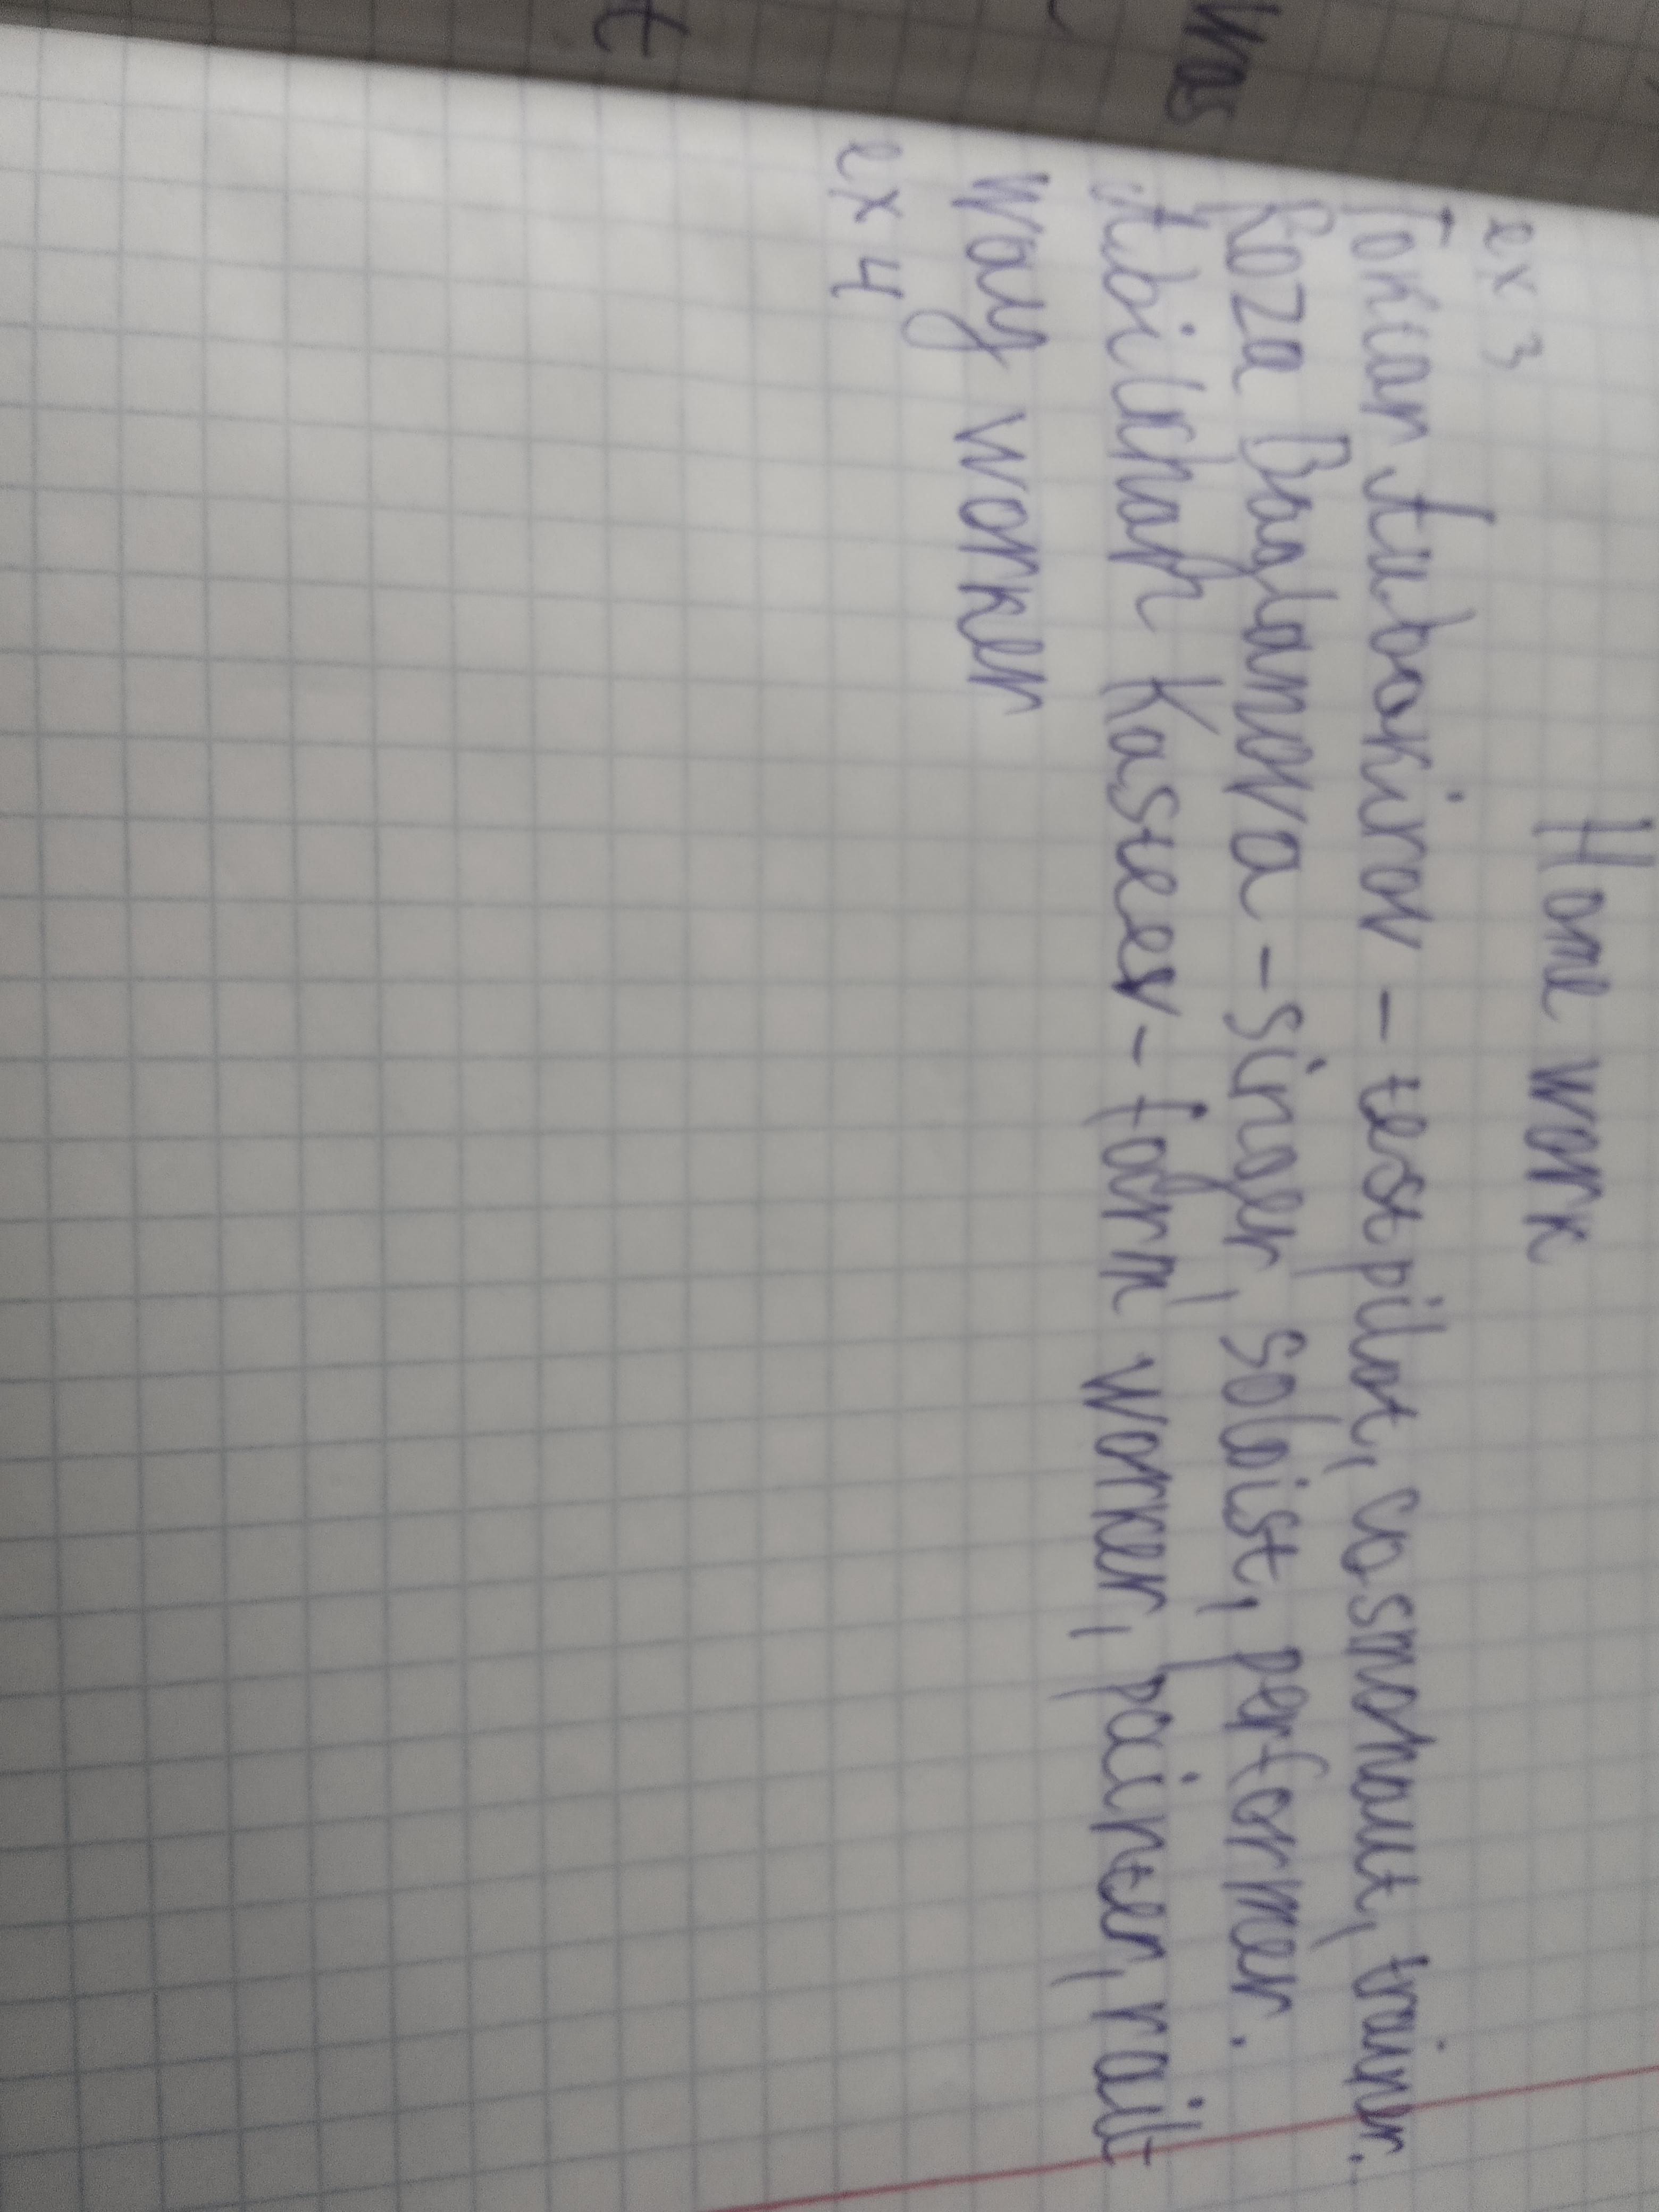 Home work
ex 3
Toktar Aubakirov - test pilot, cosmonaut, trainer.
Roza Baglanova - singer, soloist, performer.
Abilkhan Kasteev - farm worker, painter, rail
way worker
ex 4
was
t